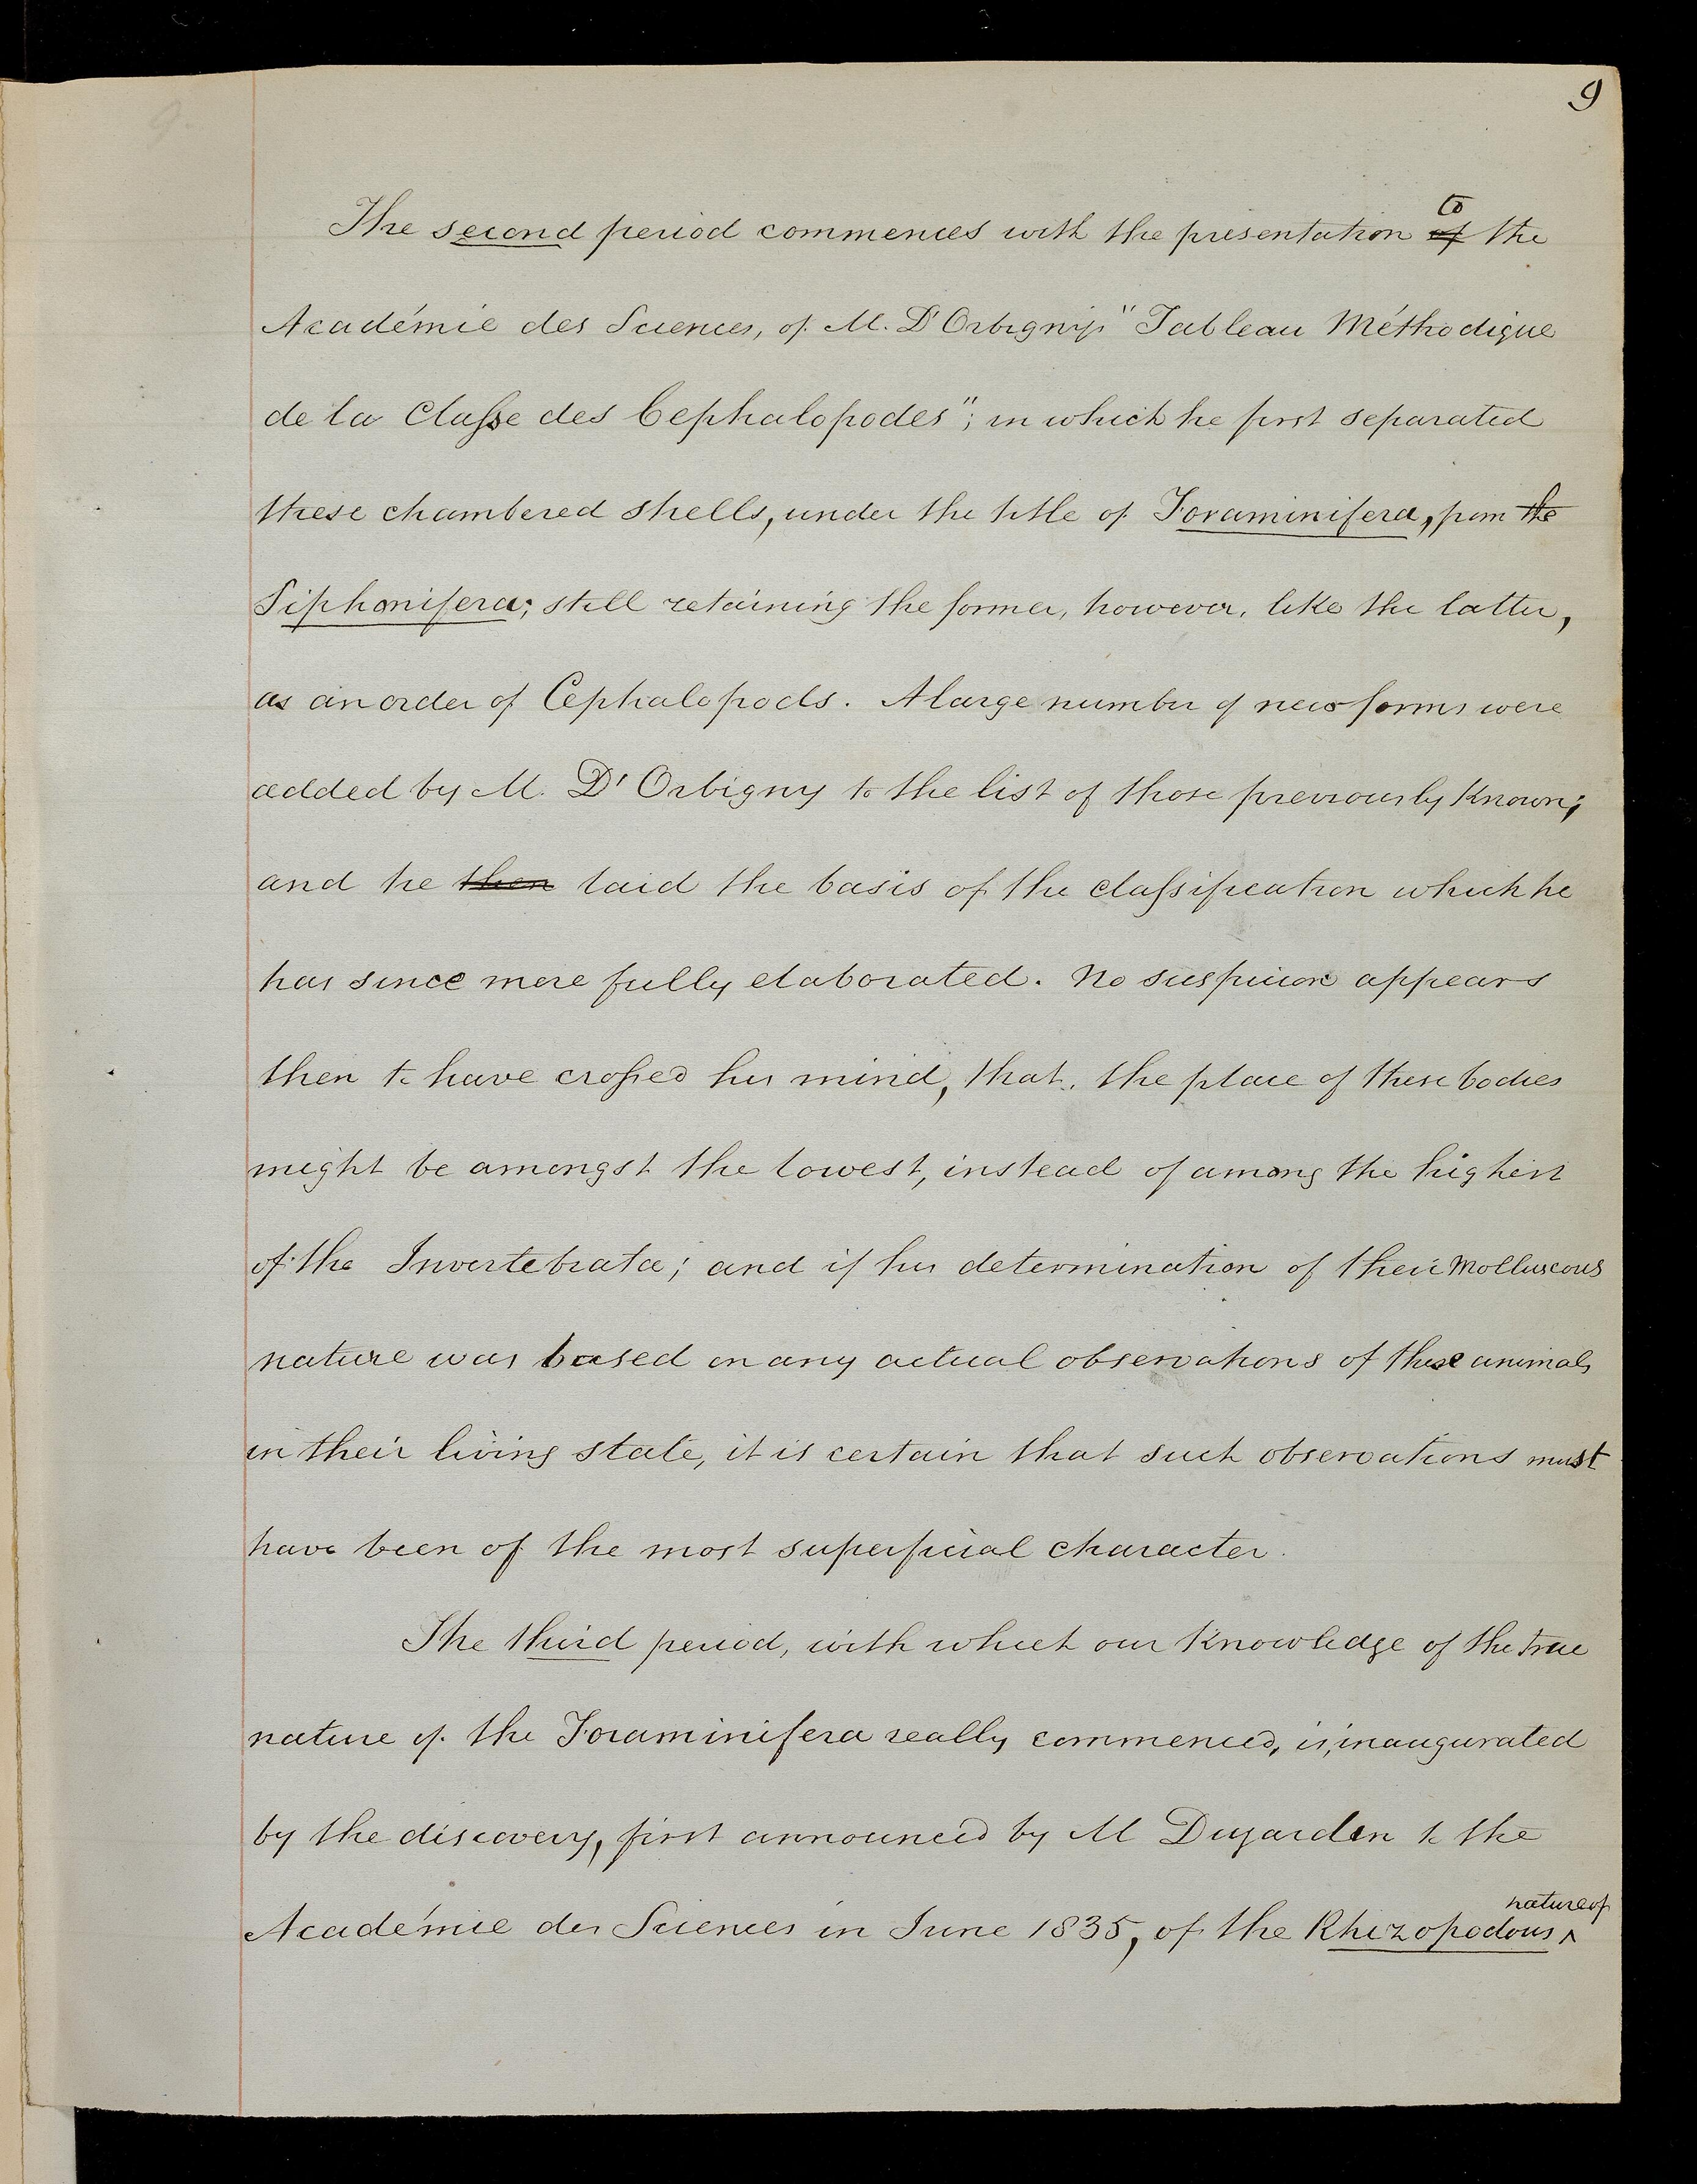 9
The second period commences with the presentation to of the
Académie des Sciences, of M. D'Orbigny's "Tableau Méthodique
de la Classe des Cephalopodes"; in which he first separated
these chambered shells, under the title of Foraminifera, from the
Siphonifera; still retaining the former, however, like the latter,
as an order of Cephalopods. A large number of new forms were
added by M. D'Orbigny to the list of those previously known;
and he then laid the basis of the classification which he
has since more fully elaborated. No suspicion appears
then to have crossed his mind, that the place of these bodies
might be amongst the lowest, instead of among the highest
of the Invertebrata; and if his determination of their Molluscous
nature was based on any actual observations of these animals
in their living state, it is certain that such observations must
have been of the most superficial character.
The third period, with which our knowledge of the true
nature of the Foraminifera really commenced, is, inaugurated
by the discovery, first announced by M Dujardin to the
Académie des Sciences in June 1835, of the Rhizopodous ^ nature of